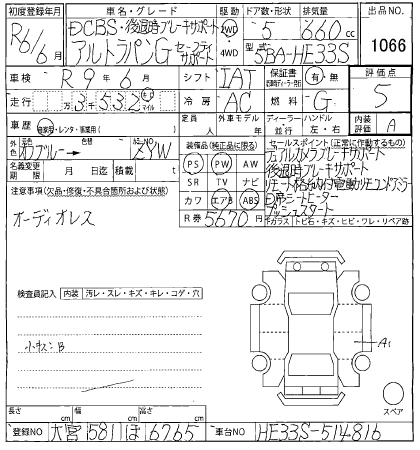 初度登録年月 車名・グレード 駆動 ドア数・形状 排気量 出品No.
R6/6月 DCBS・後退時ブレーキサポート 2WD 5 660cc 1066
アルトラパンG セーフティサポート 4WD 型式 5BA-HE33S
車検 R9年6月 シフト IAT 保証書 有・無 評価点
走行 万3千532 キロ マイル 冷房 AC 燃料 G 5
定員 人 外車モデル 年 ディーラー 並行 ハンドル 左・右 内装評価 A
車歴 自家用・レンタ・事業用( )
外色 元色 オフブルー→ 色替 カラーNo. ZYW
装備品(純正品に限る)
セールスポイント(正常に作動するもの)
PS PW AW
SR TV ナビ
カワ エアB ABS
R券 5670円
デュアルカメラブレーキサポート
後退時ブレーキサポート
リモート格納付電動リモコンドアミラー
D席シートヒーター
プッシュスタート
名義変更期限 月 日迄 積載 t
注意事項(欠品・修復・不具合箇所および状態)
オーディオレス
ガラス・トビ石・キズ・ヒビ・ワレ・リペア跡
検査員記入 内装 汚レ・スレ・キズ・キレ・コゲ・穴
小キズB
A1
スペア
長さ cm 幅 cm 高さ cm
登録NO 大宮 581 ほ 6765 車台No. HE33S-514816